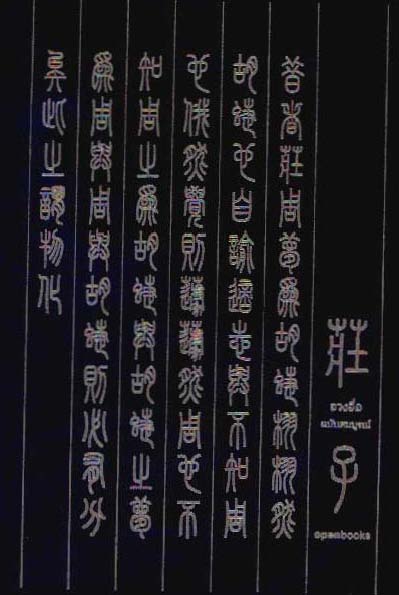 莊
จวงจื่อ
ฉบับสมบูรณ์
子
openbooks
昔者莊周夢爲胡蝶栩栩然
胡蝶也自喻適志與不知周
也俄然覺則蘧蘧然周也不
知周之爲胡蝶與胡蝶之夢
爲周與周與胡蝶則必有分
矣此之謂物化